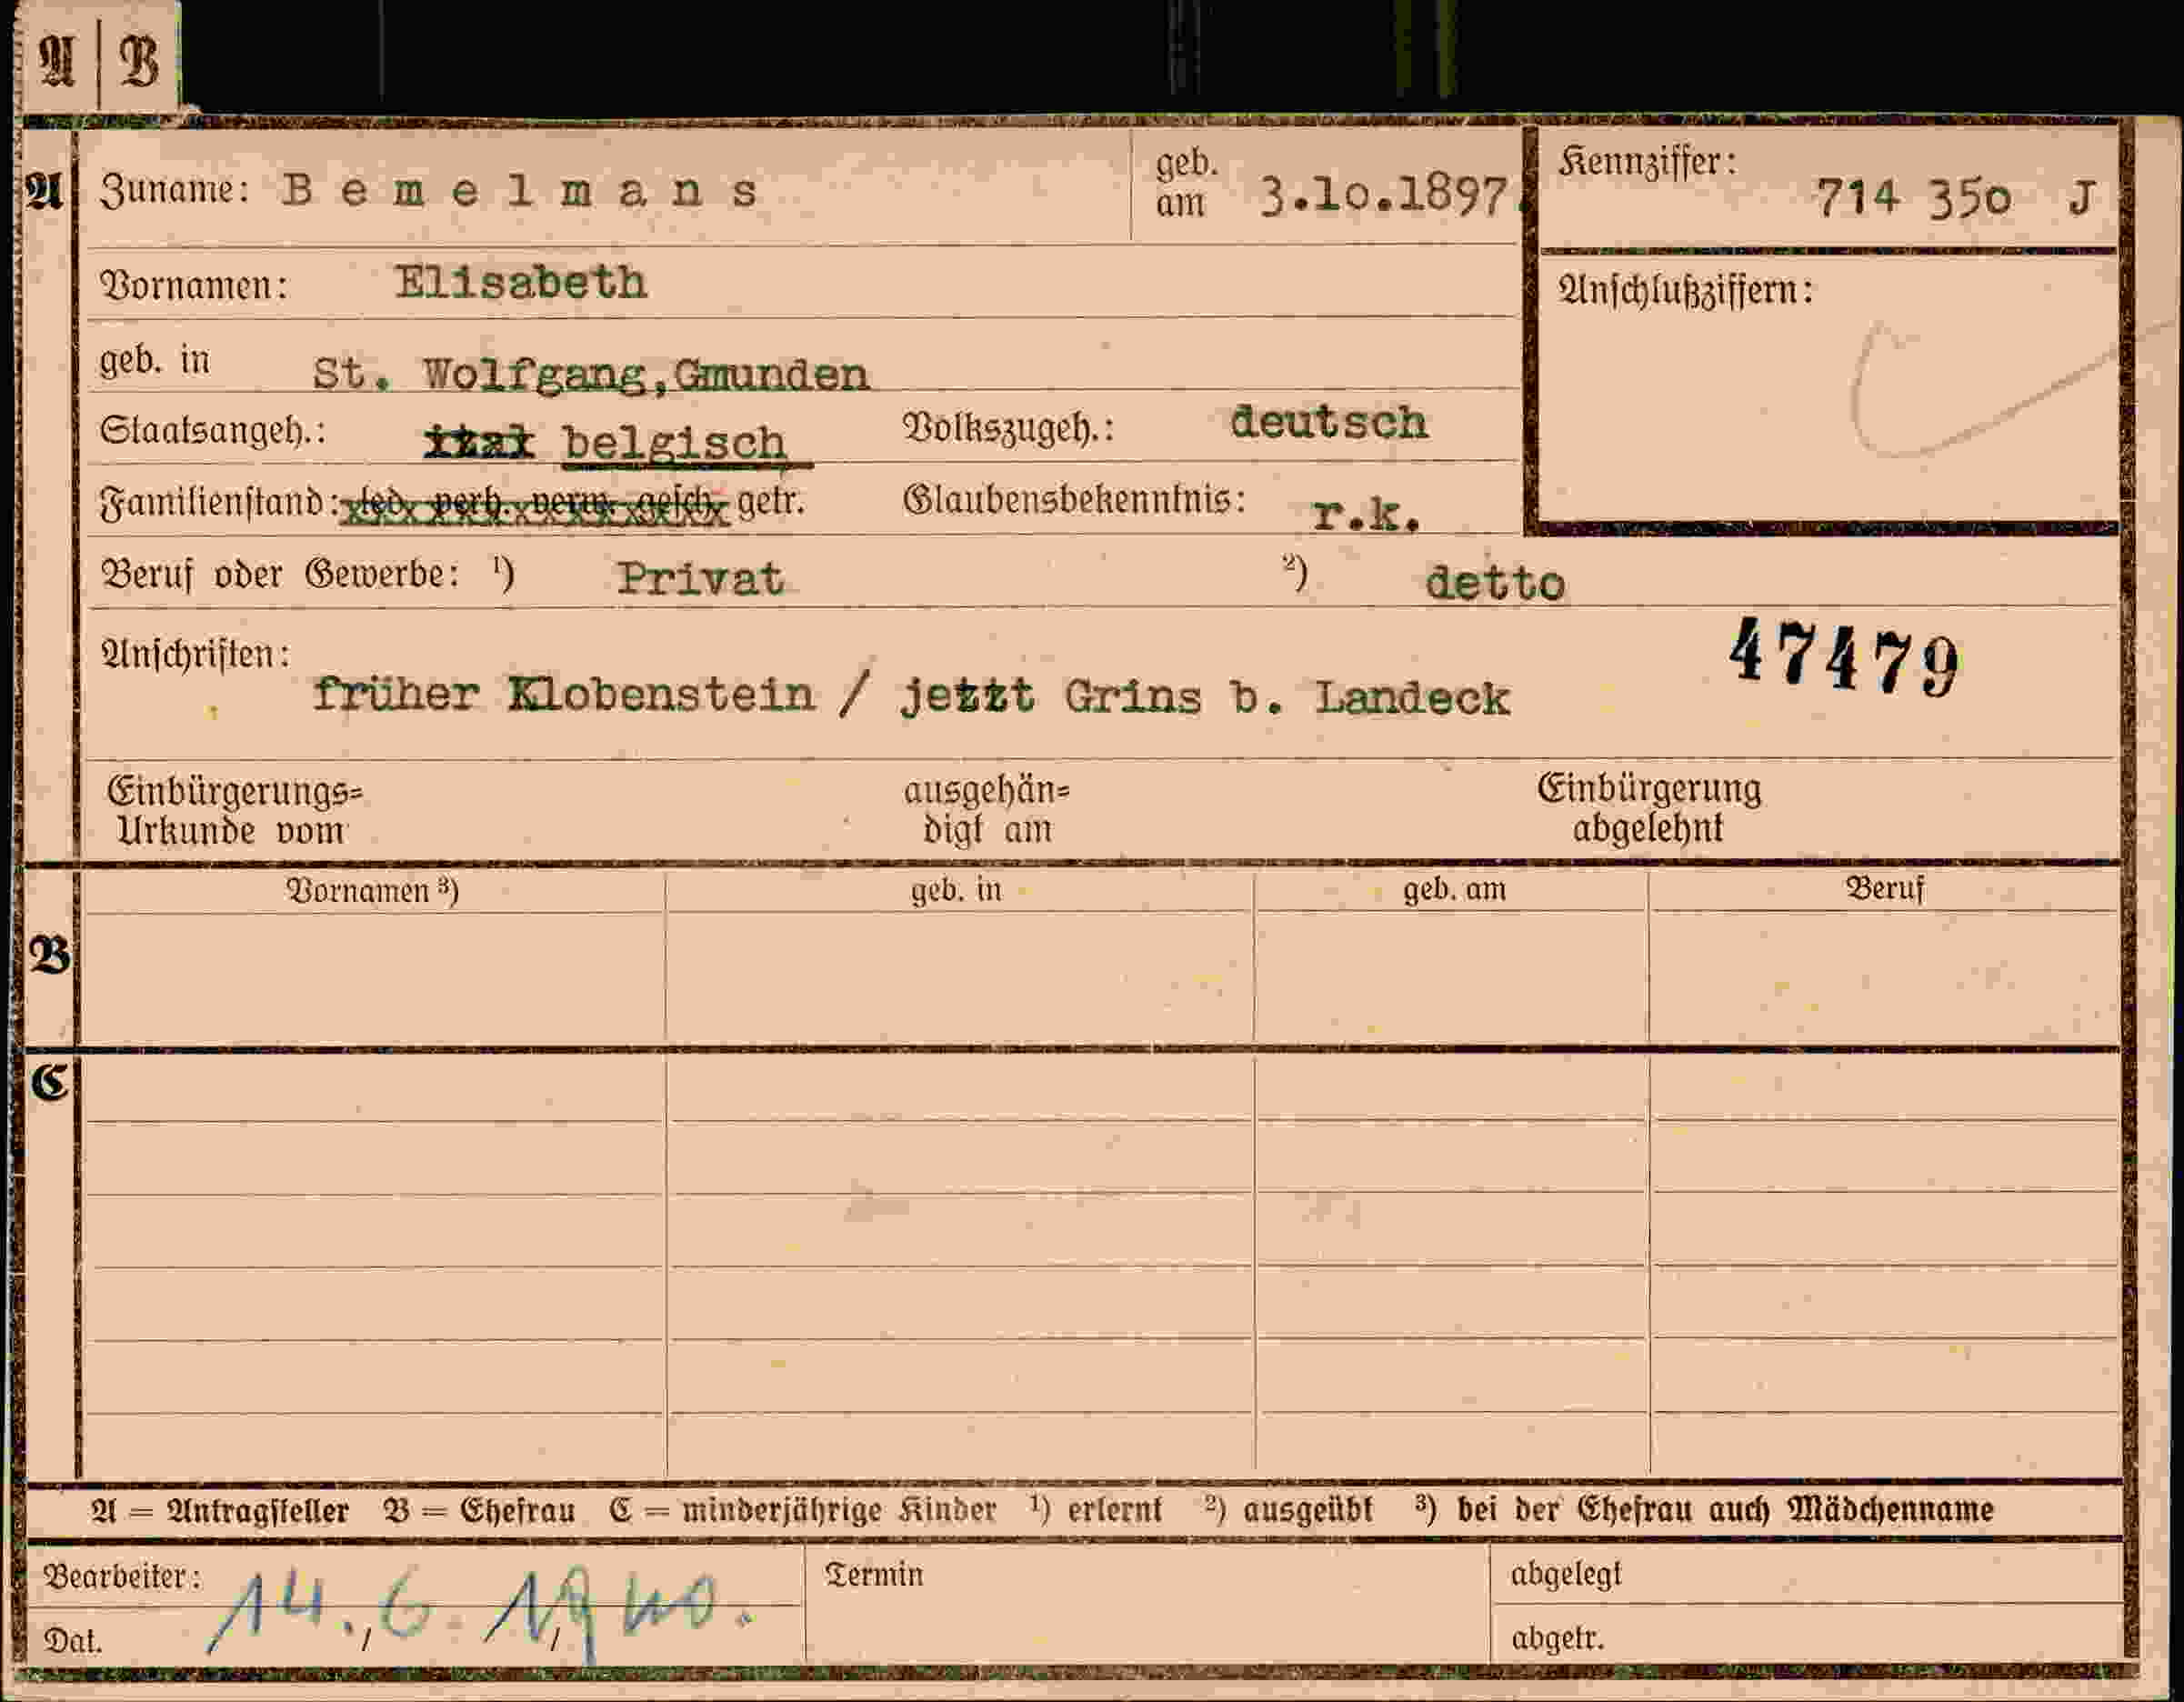 A | B
A Zuname: Bemelmans geb. am 3.10.1897. Kennziffer: 714 350 J
Vornamen: Elisabeth Anschlußziffern:
geb. in St. Wolfgang,Gmunden
Staatsangeh.: ital belgisch Volkszugeh.: deutsch
Familienstand: led. verh. verw. gesch. getr. Glaubensbekenntnis: r.k.
Beruf oder Gewerbe: ¹) Privat ²) detto
47479
Anschriften: früher Klobenstein / jetzt Grins b. Landeck
Einbürgerungs= ausgehän= Einbürgerung
Urkunde vom digt am abgelehnt
Vornamen ³) geb. in geb. am Beruf
B
C
A = Antragsteller B = Ehefrau C = minderjährige Kinder ¹) erlernt ²) ausgeübt ³) bei der Ehefrau auch Mädchenname
Bearbeiter: Termin abgelegt
14.6.1940.
Dat. abgetr.